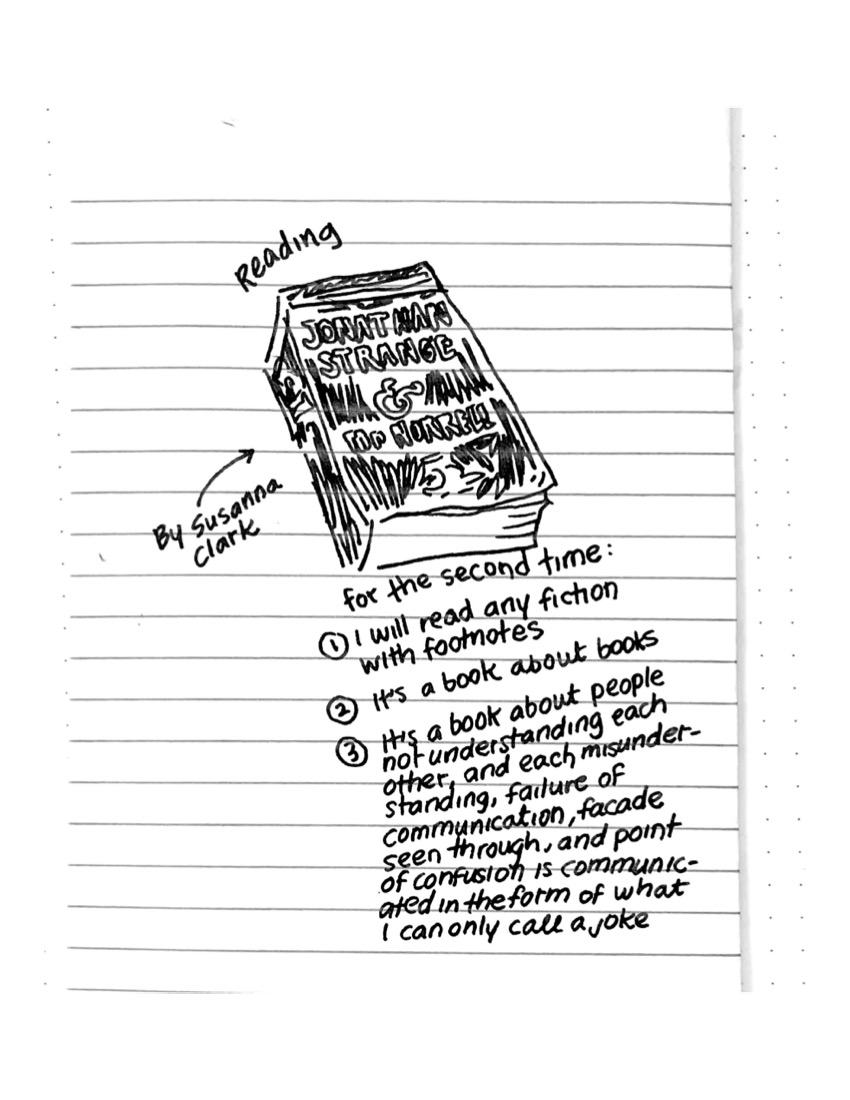 Reading
JONATHAN
STRANGE
&
NORRELL
By Susanna
Clark
for the second time:
① I will read any fiction
with footnotes
② It's a book about books
③ It's a book about people
not understanding each
other, and each misunder-
standing, failure of
communication, facade
seen through, and point
of confusion is communic-
ated in the form of what
I can only call a joke